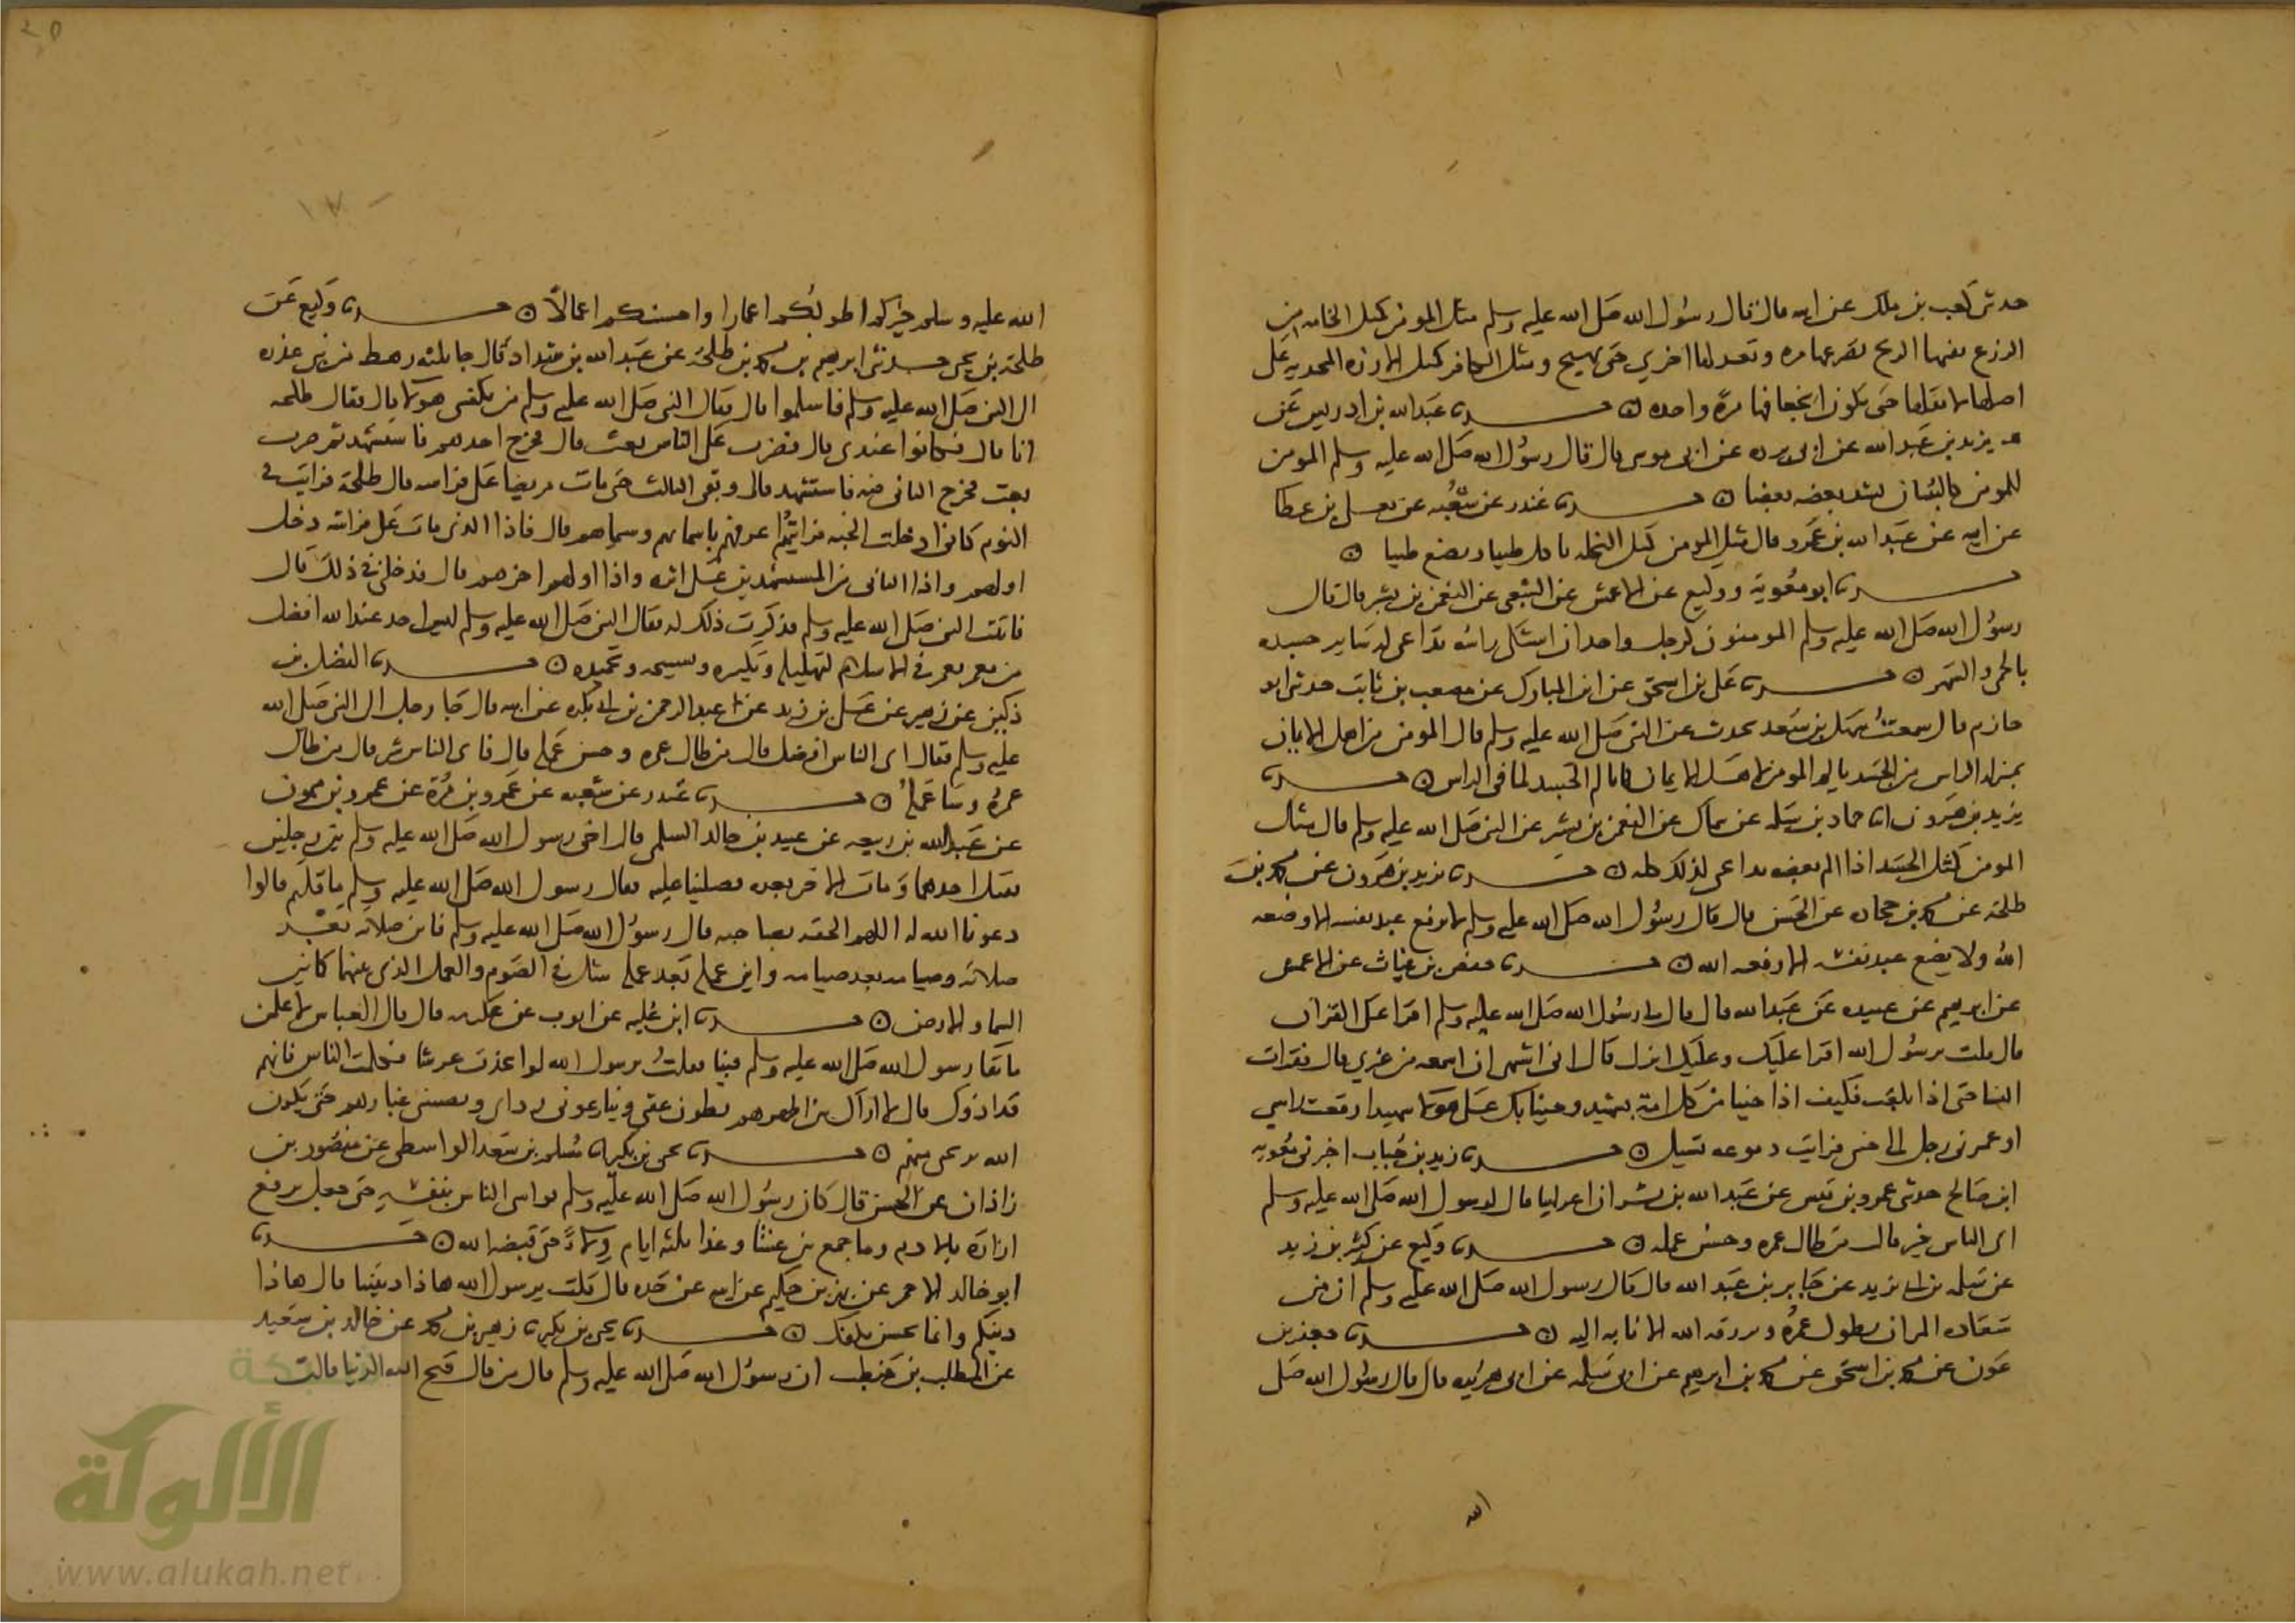 حدثني كعب بن ملك عن ابيه قال قال رسول الله صلى الله عليه وسلم مثل المومن كمثل الخامه من
الزرع تفيئها الريح تصرعها مره وتعدلها اخري حتى تهيج ومثل الكافر كمثل الارزه المجديه على
اصلها لا يقلها حتى يكون انجعافها مرة واحده حدثنا عبد الله بن ادريس عن
بريد بن عبد الله عن ابي برده عن ابي موسى قال قال رسول الله صلى الله عليه وسلم المومن
للمومن كالبنيان يشد بعضه بعضا حدثنا غندر عن شعبه عن يعلى بن عطا
عن ابيه عن عبد الله بن عمرو قال مثل المومن كمثل النخله تاكل طيبا وتضع طيبا
حدثنا ابو معوية ووكيع عن الاعمش عن الشعبي عن النعمن بن بشير قال قال
رسول الله صلى الله عليه وسلم المومنون كرجل واحد ان اشتكى راسه تداعى له ساير جسده
بالحمى والسهر حدثنا على بن اسحق عن ابن المبارك عن مصعب بن ثابت حدثني ابو
حازم قال سمعت سهل بن سعد يحدث عن النبي صلى الله عليه وسلم قال المومن من اهل الايمان
بمنزلة الراس من الجسد يالم المومن لاهل الايمان كما يالم الجسد لما في الراس حدثنا
يزيد بن هرون انا حماد بن سلمه عن سماك عن النعمن بن بشير عن النبي صلى الله عليه وسلم قال مثل
المومن كمثل الجسد اذا الم بعضه تداعى لذلك كله حدثنا يزيد بن هرون عن محمد بن
طلحة عن محمد بن جحاده عن الحسن قال قال رسول الله صلى الله عليه وسلم لا يرفع عبد نفسه الا وضعه
الله ولا يضع عبد نفسه الا رفعه الله حدثنا حفص بن غياث عن الاعمش
عن ابرهيم عن عبيده عن عبد الله قال قال لي رسول الله صلى الله عليه وسلم اقرا على القران
قال قلت يرسول الله اقرا عليك وعليك انزل قال اني اشتهي ان اسمعه من غيري قال فقرات
النسا حتى اذا بلغت فكيف اذا جينا من كل امة بشهيد وجينا بك على هولا شهيدا رفعت راسي
او غمزني رجل الى جنبي فرايت دموعه تسيل حدثنا زيد بن حباب اخبرني معويه
ابن صالح حدثني عمرو بن قيس عن عبد الله بن بسر ان اعرابيا قال لرسول الله صلى الله عليه وسلم
اي الناس خير قال من طال عمره وحسن عمله حدثنا وكيع عن كثير بن زيد
عن سلمه بن ابي يزيد عن جابر بن عبد الله قال قال رسول الله صلى الله عليه وسلم ان من
سعاده المرء ان يطول عمره ويرزقه الله الانابه اليه حدثنا جعفر بن
عون عن محمد بن اسحق عن محمد بن ابرهيم عن ابي سلمه عن ابي هريره قال قال رسول الله صلى
الله
الله عليه وسلم خيركم اطولكم اعمارا واحسنكم اعمالا حدثنا وكيع عن
طلحة بن يحيى حدثني ابرهيم بن محمد بن طلحة عن عبد الله بن شداد قال جا ثلثه رهط من بني عذره
الى النبي صلى الله عليه وسلم فاسلموا قال فقال النبي صلى الله عليه وسلم من يكفيني هولا قال فقال طلحه
انا قال فكانوا عندي قال فضرب على الناس بعث قال فخرج احدهم فاستشهد ثم ضرب
بعث فخرج الثاني فيه فاستشهد قال وبقى الثالث حتى مات مريضا على فراشه قال طلحة فرايت في
النوم كاني ادخلت الجنه فرايتهم اعرفهم باسمائهم وسيماهم قال فاذا الذي مات على فراشه دخل
اولهم واذا الثاني من المستشهدين على اثره واذا اولهم اخرهم قال فدخلني في ذلك قال
فاتيت النبي صلى الله عليه وسلم فذكرت ذلك له فقال النبي صلى الله عليه وسلم ليس احد عند الله افضل
من معمر يعمر في الاسلام لتهليله وتكبيره وتسبيحه وتحميده حدثنا الفضل بن
دكين عن زهير عن على بن زيد عن عبد الرحمن بن ابي بكره عن ابيه قال جا رجل الى النبي صلى الله
عليه وسلم فقال اي الناس افضل قال من طال عمره وحسن عمله قال فاي الناس شر قال من طال
عمره وسا عمله حدثنا غندر عن شعبه عن عمرو بن مرة عن عمرو بن ميمون
عن عبد الله بن ربيعه عن عبيد بن خالد السلمي قال اخى رسول الله صلى الله عليه وسلم بين رجلين
فقتل احدهما ومات الاخر بعده فصلينا عليه فقال رسول الله صلى الله عليه وسلم ما قلتم قالوا
دعونا الله له اللهم الحقه بصاحبه قال رسول الله صلى الله عليه وسلم فاين صلاته بعد
صلاته وصيامه بعد صيامه واين عمله بعد عمله شك في الصوم والعمل الذي بينهما كما بين
السما والارض حدثنا ابن عليه عن ايوب عن عكرمه قال قال العباس لاعلمن
ما بقا رسول الله صلى الله عليه وسلم فينا فقلت يرسول الله لو اتخذت عرشا فكلمت الناس فانهم
قد اذوك قال لا ازال بين اظهرهم يطون عقبي وينازعوني رداي ويصيبني غبارهم حتى يكون
الله يرحمني منهم حدثنا يحيى بن بكير مسلم بن سعد الواسطي عن منصور بن
زاذان عن الحسن قال كان رسول الله صلى الله عليه وسلم يواسي الناس بنفسه حتى جعل يرقع
ازاره بالادم وما جمع بين عشا وغدا ثلثه ايام ولاء حتى قبضه الله حدثنا
ابو خالد الاحمر عن بهز بن حكيم عن ابيه عن جده قال قلت يرسول الله هاذا ديننا قال هاذا
دينكم واينما تحسن يكفك حدثنا يحيى بن بكير زهير بن محمد عن خالد بن سعيد
عن المطلب بن حنطب ان رسول الله صلى الله عليه وسلم قال من قال قبح الله الدنيا قالت
شبكة
الألوكة
www.alukah.net